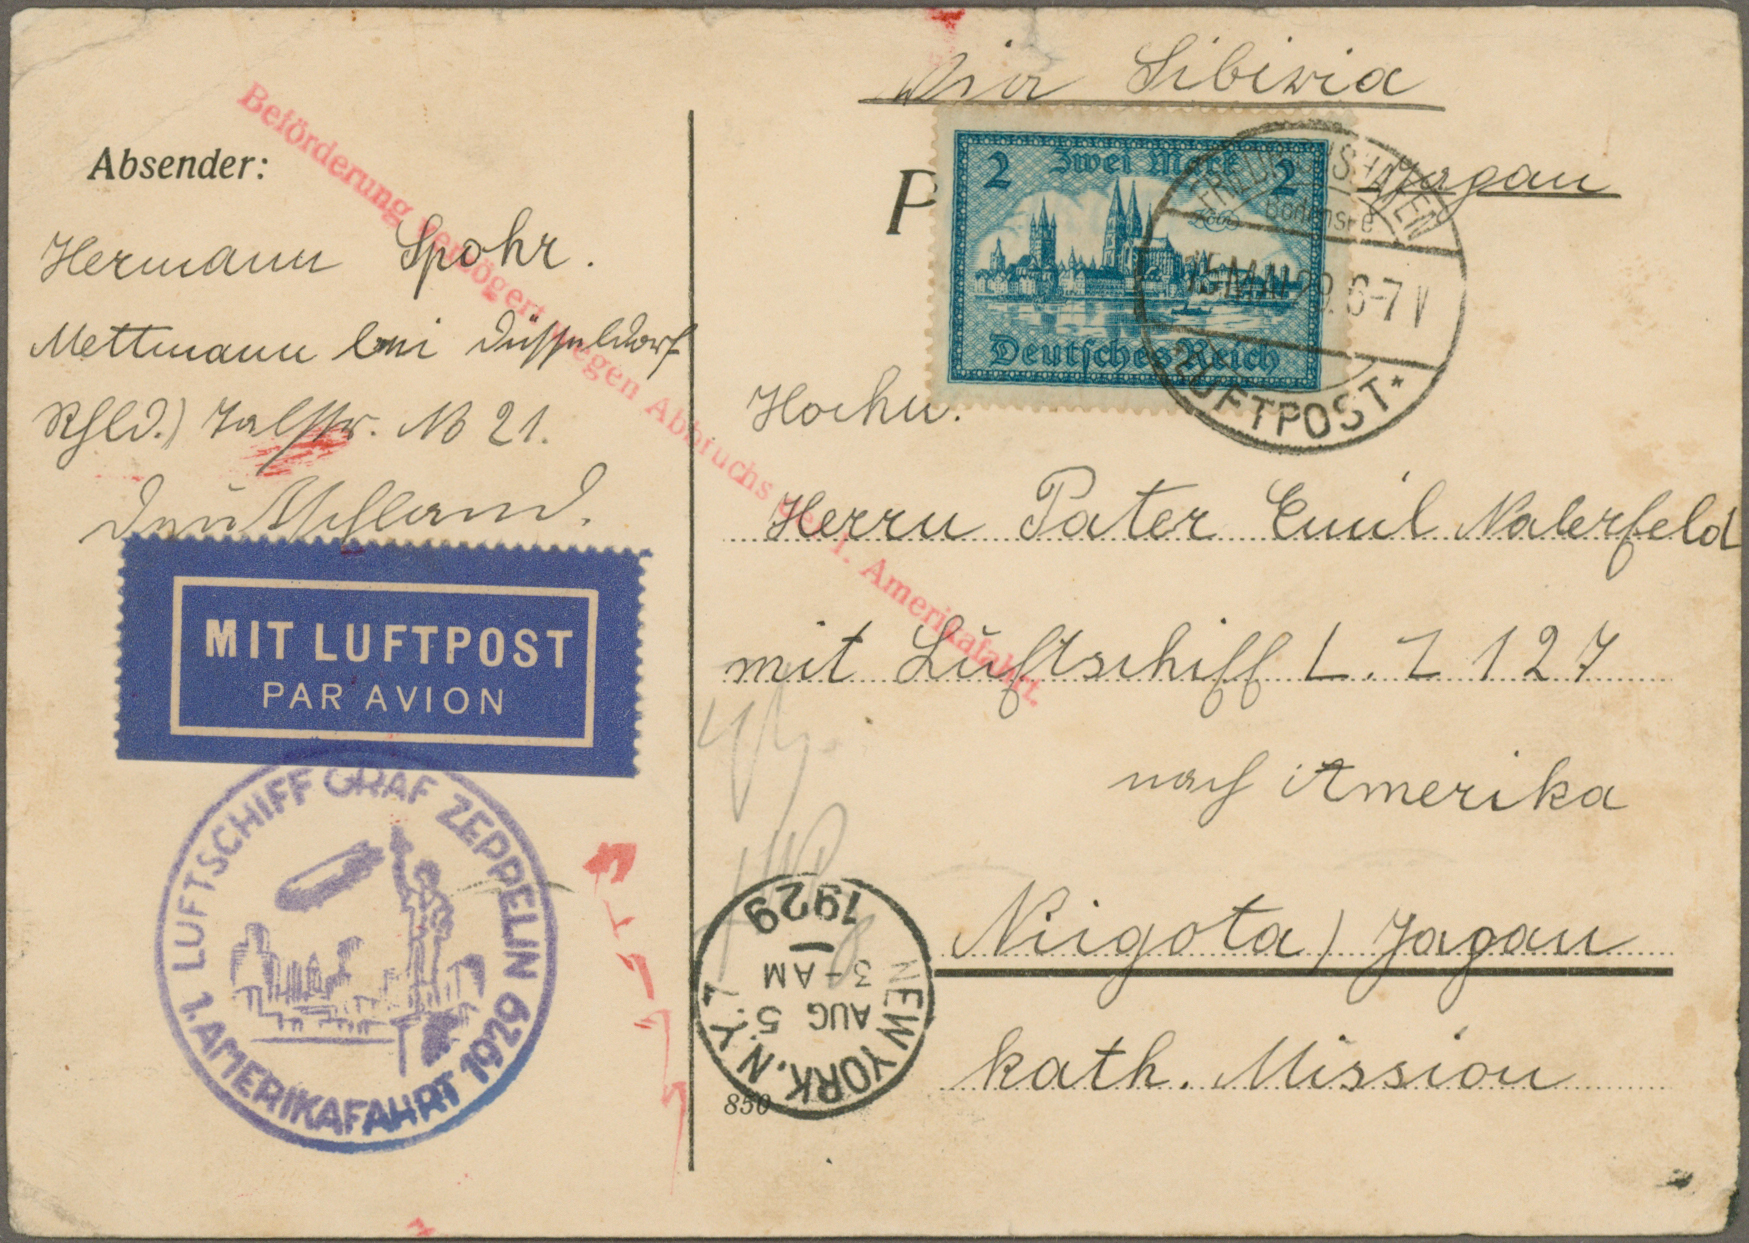 Via Sibiria
Japan
Absender:
Hermann Spohr.
Mettmann bei Düsseldorf
Rhld.) Talstr. No 21.
Deutschland.
Beförderung verzögert wegen Abbruchs der 1. Amerikafahrt.
MIT LUFTPOST
PAR AVION
LUFTSCHIFF GRAF ZEPPELIN
1. AMERIKAFAHRT 1929
P
2 Zwei Mark 2
Deutsches Reich
FRIEDRICHSHAFEN
Bodensee
MAI 29. 6-7 V
LUFTPOST
Hochw.
Herrn Pater Emil Nalerfeld
mit Luftschiff L. Z 127
nach Amerika
Niigota / Japan
kath. Mission
NEW YORK, N.Y. 1
AUG 5
3-AM
1929
850